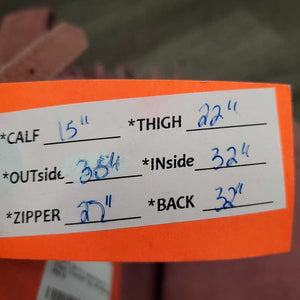 *CALF 15" *THIGH 22"
*OUTside 35" *INside 32"
*ZIPPER 27" *BACK 32"